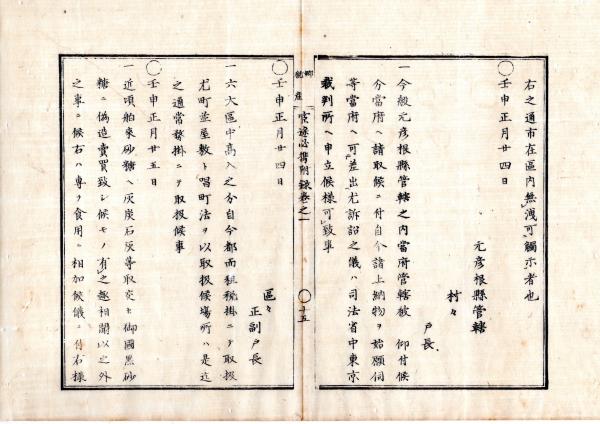 右之通市在區内無洩可觸示者也
〇壬申正月廿四日
元彦根縣管轄
村々
戸長
一今般元彦根縣管轄之内當府管轄被 仰付候
分當府ヘ請取候ニ付自今諸上納物ヲ始願伺
等當府ヘ可差出尤訴訟之儀ハ司法省中東京
裁判所ヘ申立候様可致事
官途必携附録卷之一
〇十五
〇壬申正月廿四日
區々
正副戸長
一六大區中高入之分自今都而租税掛ニテ取扱
尤町並屋敷ト唱町法ヲ以取扱候場所ハ是迄
之通常務掛ニテ取扱候事
〇壬申正月廿五日
一近頃舶来砂糖ヘ灰炭石灰等取交セ御國黒砂
糖ニ偽造賣買致シ候モノ有之趣相聞以之外
之事ニ候右ハ専ラ食用ニ相加候儀ニ付右様